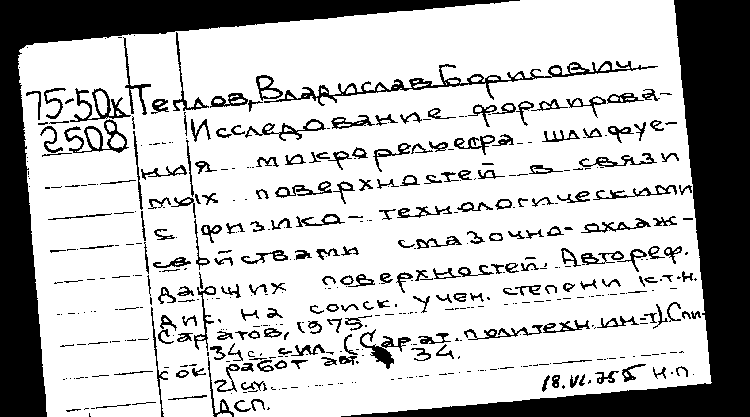 75-50к Теплов, Владислав Борисович.
2508 Исследование формирова-
ния микрорельефа шлифуе-
мых поверхностей в связи
с физико-технологическими
свойствами смазочно-охлаж-
дающих поверхностей. Автореф.
дис. на соиск. учен. степени к.т.н.
Саратов, 1975.
34 с. с ил. (Сарат. политехн. ин-т). Спи-
сок работ авт. 34.
ДСП.
18.VI.75 Н.П.